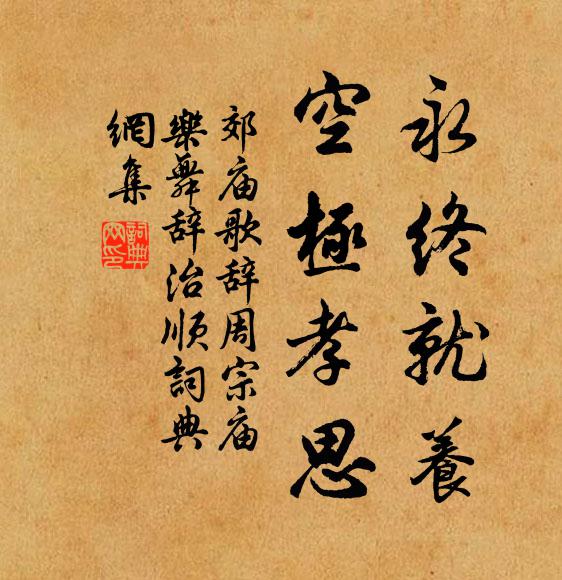 永終就養
空極孝思
郊庙歌辞周宗庙
樂舞辞治順詞典
網集
詞典
网印